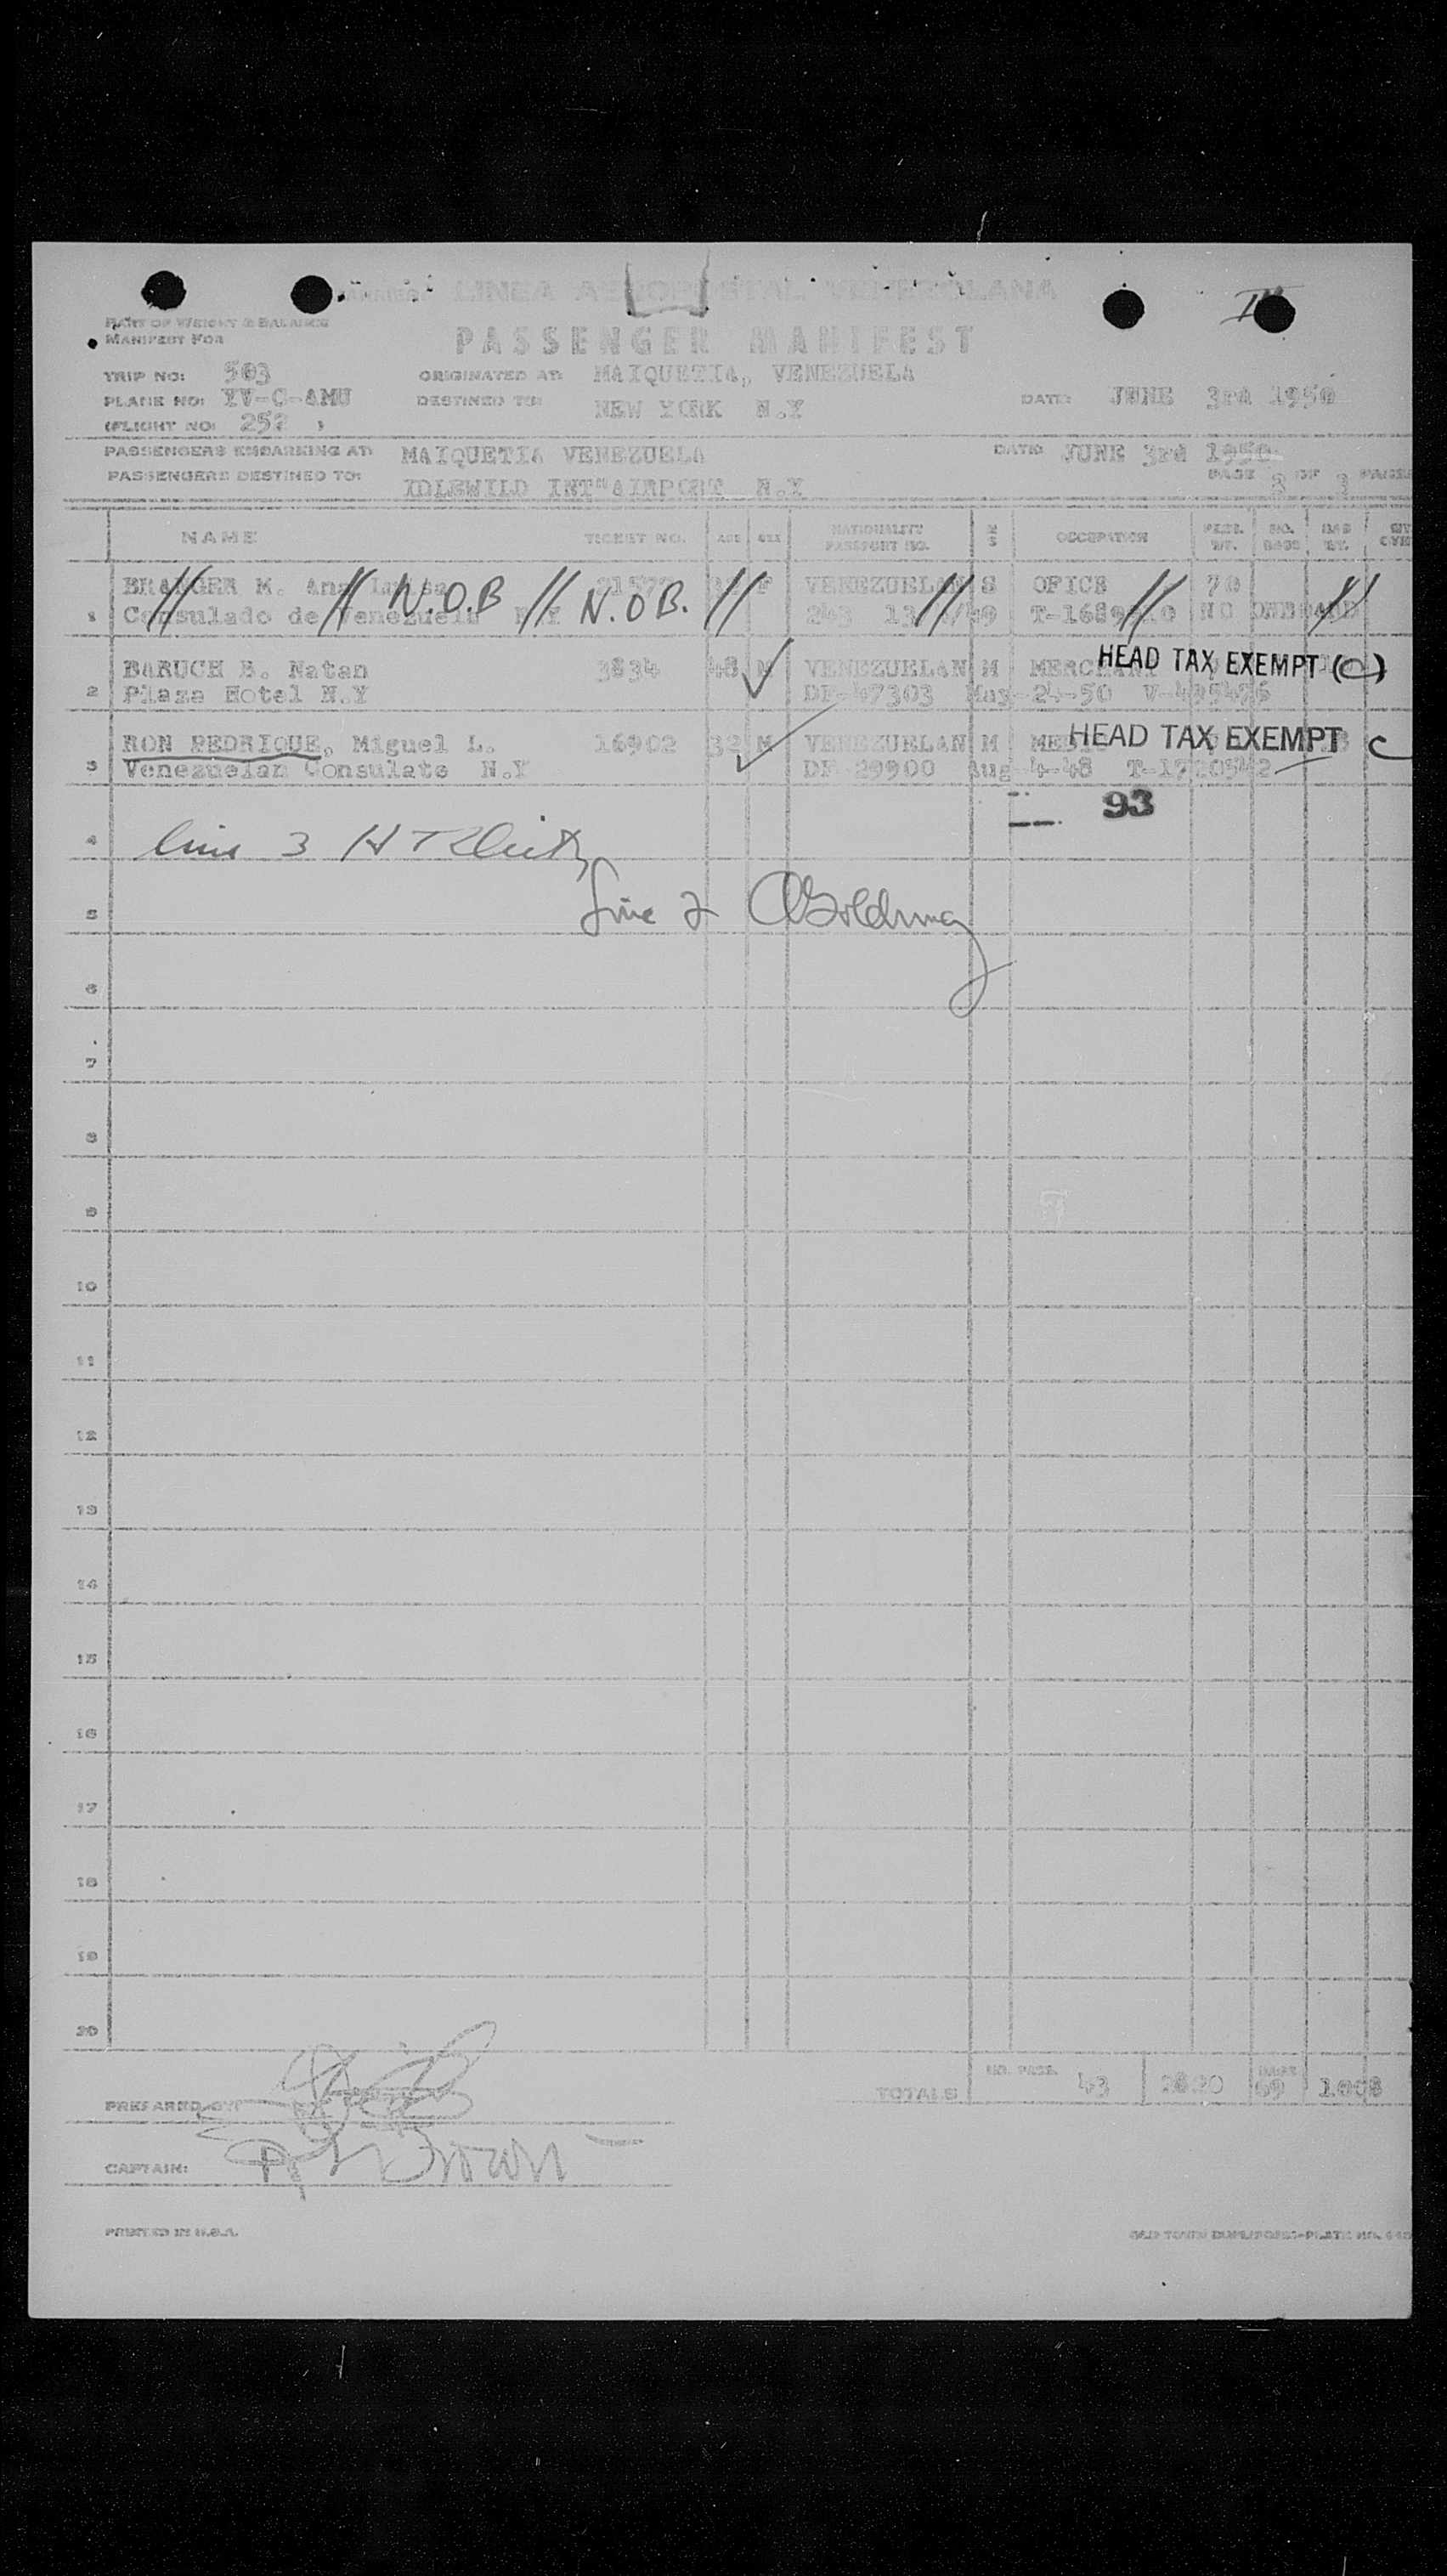 LINEA AEROPOSTAL VENEZOLANA
PART OF WEIGHT & BALANCE
MANIFEST FOR
PASSENGER MANIFEST
TRIP NO: 503
ORIGINATED AT: MAIQUETIA, VENEZUELA
PLANE NO: YV-C-AMU
DESTINED TO: NEW YORK N.Y
DATE: JUNE 3rd 1950
(FLIGHT NO: 252 )
PASSENGERS EMBARKING AT: MAIQUETIA VENEZUELA
DATE: JUNE 3rd 1950
PASSENGERS DESTINED TO: IDLEWILD INT" AIRPORT N.Y
PAGE 3 OF 3 PAGES
NAME TICKET NO. AGE SEX NATIONALITY PASSPORT NO. M S OCCUPATION PASS. WT. NO. BAGS BAG WT.
BRAEGER M. Ana N.O.B F VENEZUELAN S OFICE 70
1 Consulado de Venezuela N.Y N.O B. 243 NO ONBOARD
BARUCH B. Natan 3834 48 M VENEZUELAN M MERCHANT HEAD TAX EXEMPT (C)
2 Plaza Hotel N.Y DF-47303 May-24-50 V-495476
RON PEDRIQUE, Miguel L. 16902 32 M VENEZUELAN M HEAD TAX EXEMPT C
3 Venezuelan Consulate N.Y DF-29900 Aug-4-48 T-1720542
93
4 line 3 H
5 Line 2 Golding
6
7
8
9
10
11
12
13
14
15
16
17
18
19
20
TOTALS NO. PASS. 43 2820 BAGS 69 1008
PREPARED BY
CAPTAIN: Brown
PRINTED IN U.S.A.